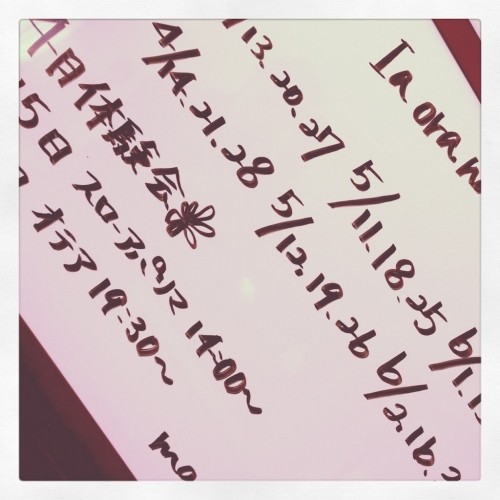 Ia oran
13. 20. 27 5/11. 18. 25 6/1.
4/14. 21. 28 5/12. 19. 26 6/2. 16. 2
4月体験会
15日 スローアパリマ 14:00〜
オテア 19:30〜
mo